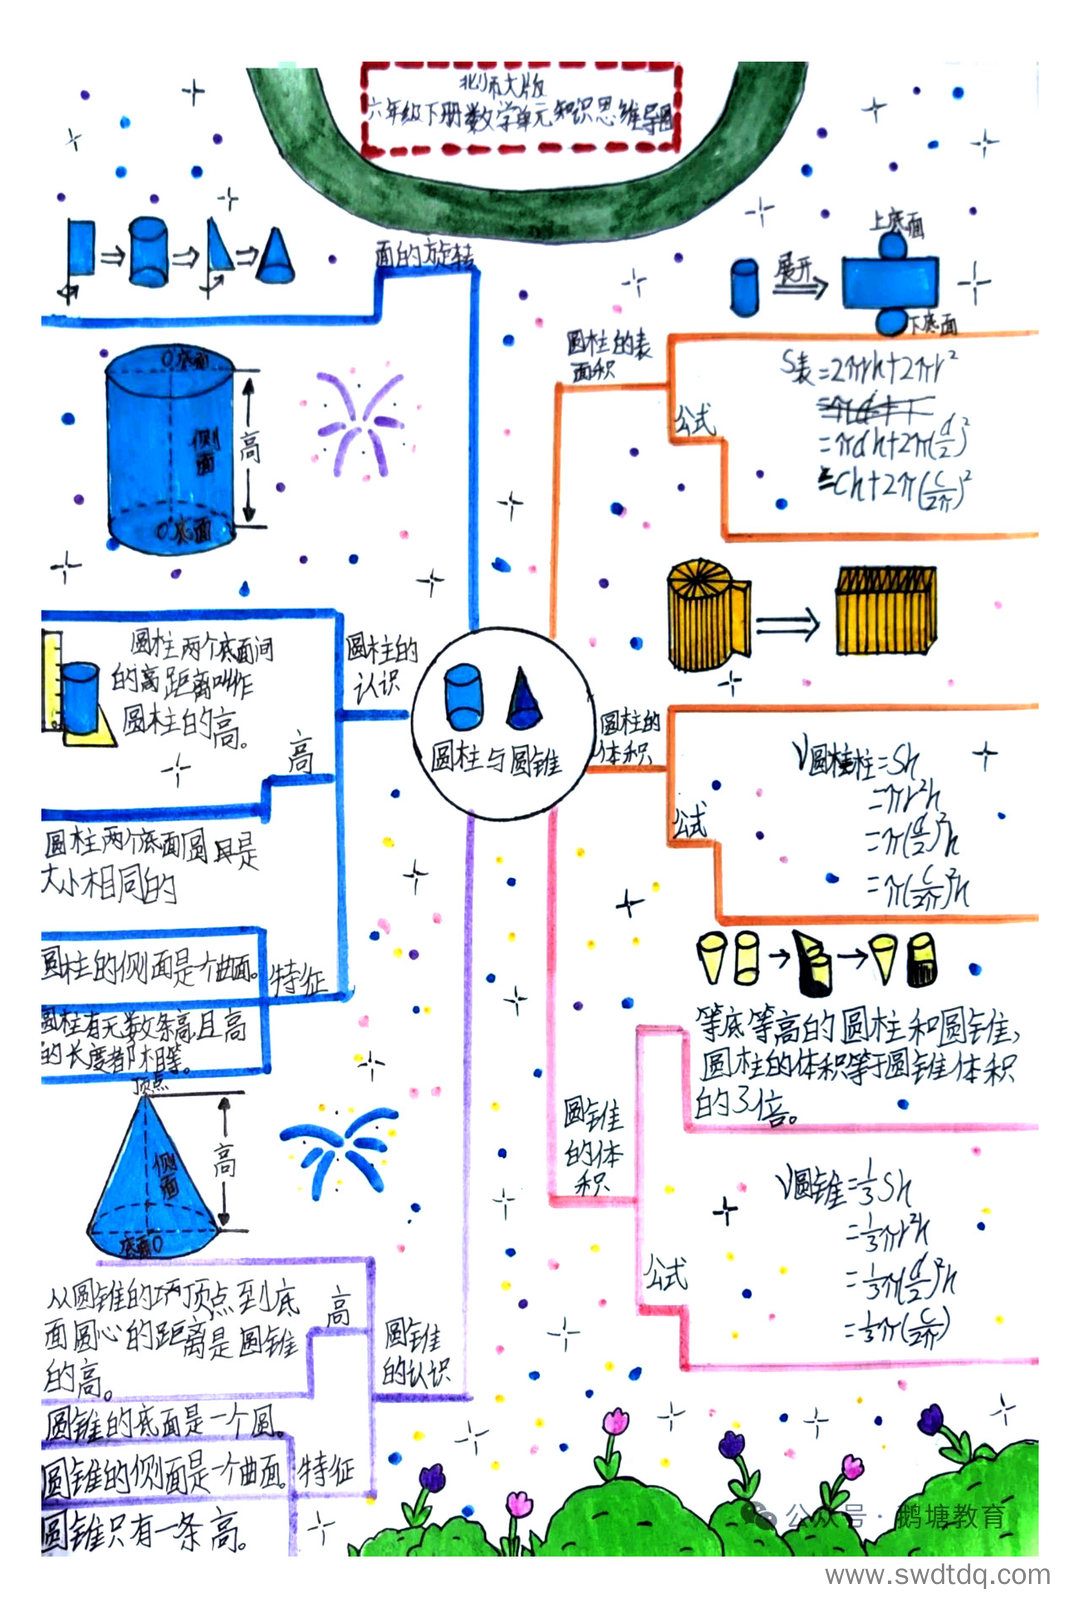 北师大版
六年级下册数学单元知识思维导图
面的旋转
底面
侧面
底面
高
圆柱的
认识
圆柱两个底面间
的高距离叫作
圆柱的高。
高
圆柱两个底面圆且是
大小相同的
圆柱的侧面是一个曲面。
特征
圆柱有无数条高,且高
的长度都相等。
顶点
侧面
高
底面O
从圆锥的顶点到底
面圆心的距离是圆锥
的高。
高
圆锥
的认识
圆锥的底面是一个圆。
圆锥的侧面是一个曲面。
特征
圆锥只有一条高。
圆柱与圆锥
上底面
展开
下底面
圆柱的表
面积
公式
S表=2πrh+2πr²
=πdh+2π(d/2)²
=Ch+2π(C/2π)²
圆柱的
体积
公式
V圆柱=Sh
=πr²h
=π(d/2)²h
=π(C/2π)²h
等底等高的圆柱和圆锥,
圆柱的体积等于圆锥体积
的3倍。
圆锥
的体
积
公式
V圆锥=1/3Sh
=1/3πr²h
=1/3π(d/2)²h
=1/3π(C/2π)
公众号·鹅塘教育
www.swdtdq.com